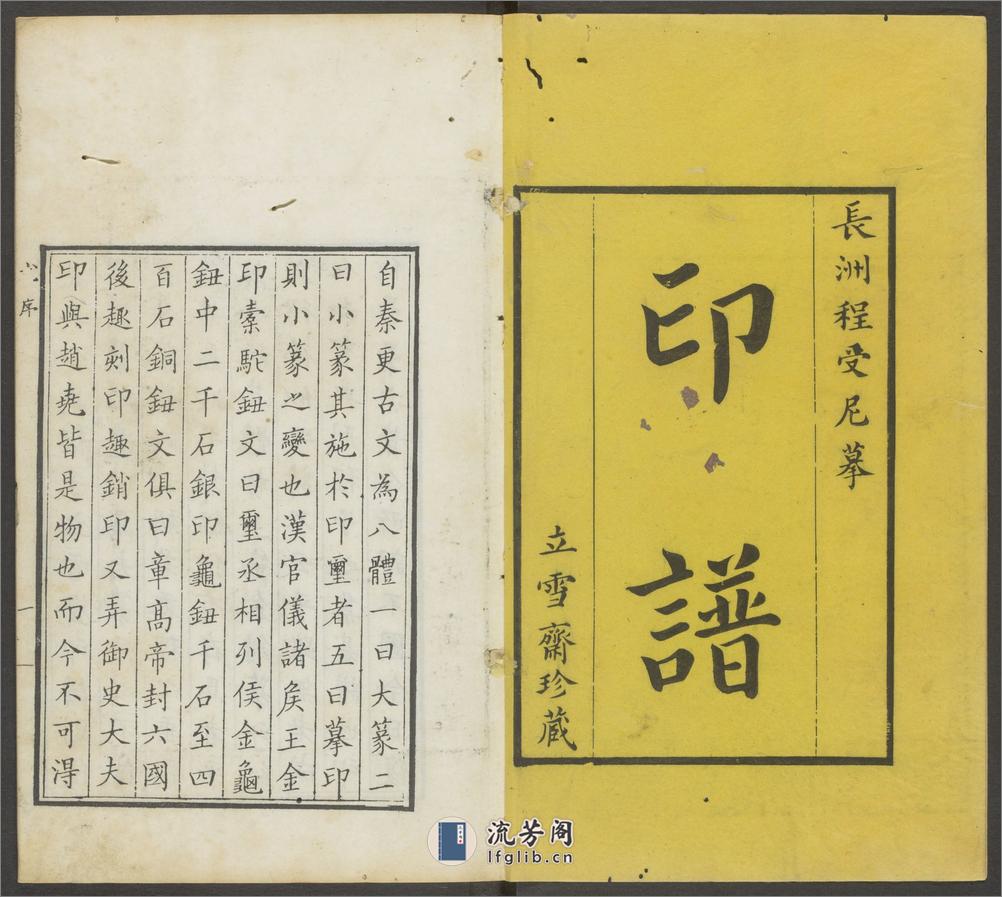 長洲程受尼摹
印譜
立雪齋珍藏
自秦更古文為八體一曰大篆二
曰小篆其施於印璽者五曰摹印
則小篆之變也漢官儀諸矦王金
印橐駝鈕文曰璽丞相列侯金龜
鈕中二千石銀印龜鈕千石至四
百石銅鈕文俱曰章高帝封六國
後趣刻印趣銷印又弄御史大夫
印與趙堯皆是物也而今不可得
序
一
流芳阁
lfglib.cn